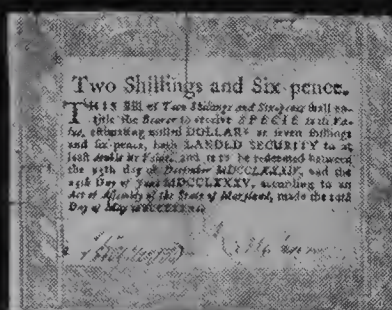 Two Shillings and Six-pence.
THIS Bill of Two Shillings and Six-pence shall en-
title the Bearer to receive SPECIE to its Va-
lue, estimating milled DOLLARS at seven shillings
and six-pence, hath LANDED SECURITY to at
least double its Value, and is to be redeemed between
the 25th day of December MDCCLXXXIV, and the
25th Day of June MDCCLXXXV, according to an
Act of Assembly of the State of Maryland, made the 10th
Day of May